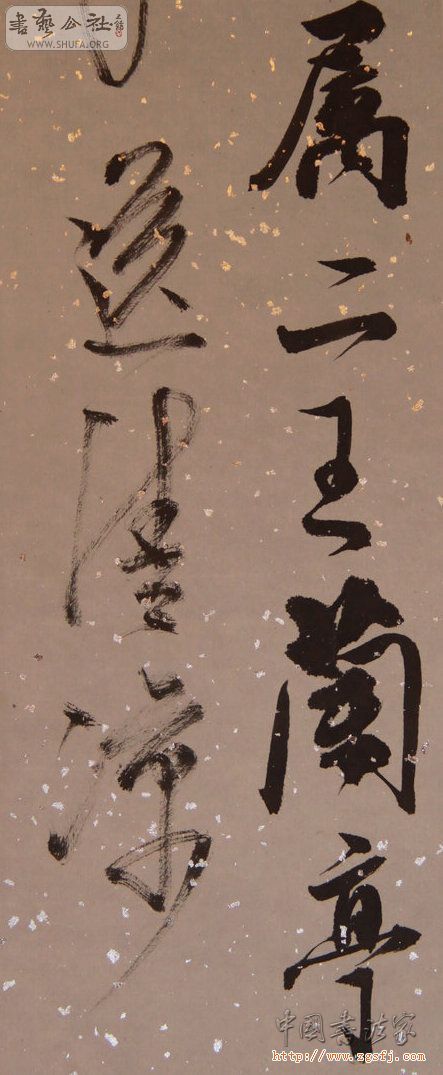 書藝公社
WWW.SHUFA.ORG
属二王蘭亭
送清凉
中國書法家
http://www.zgsfj.com